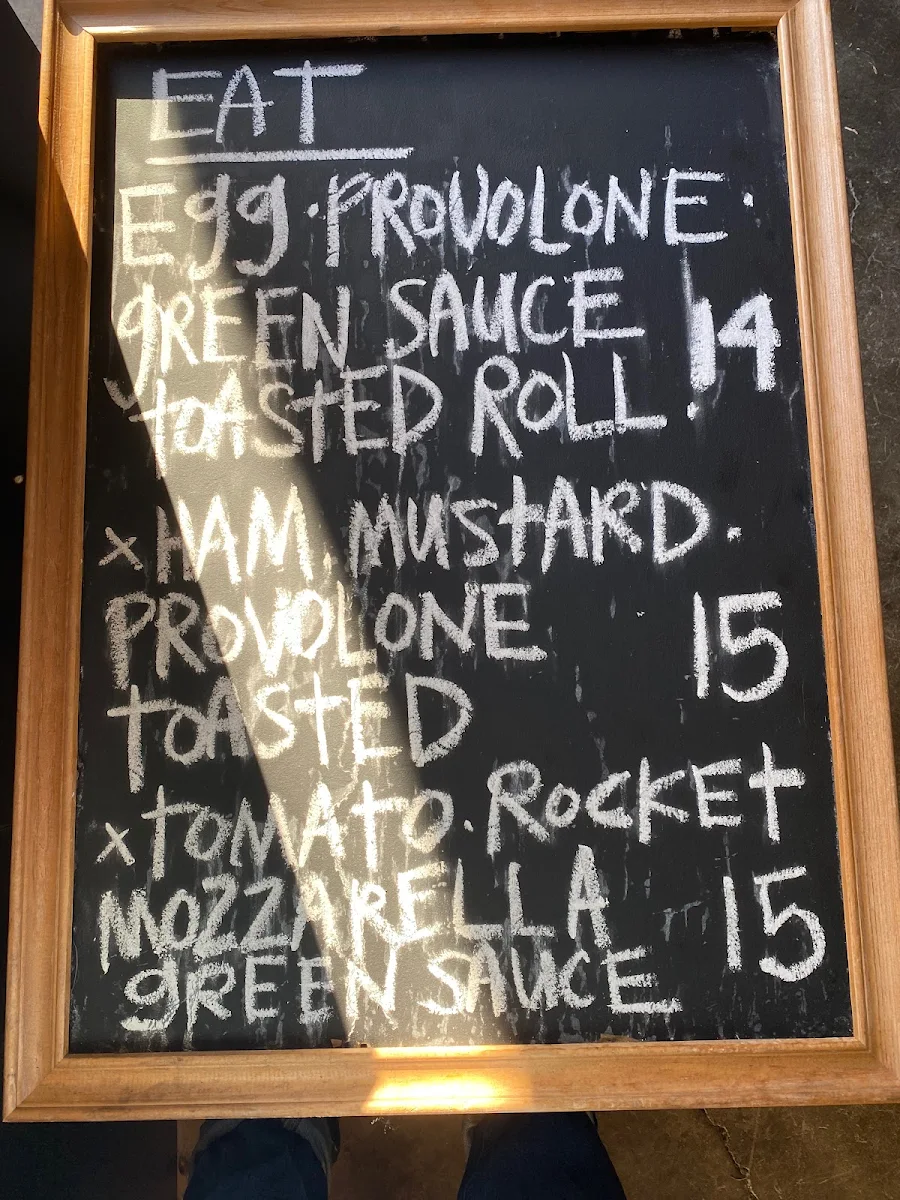 EAT
Egg · PROVOLONE ·
gREEN SAUCE 14
tOASTED ROLL.
x HAM. MUStARD.
PROVOLONE 15
tOAStED
x tOMAtO. ROCKEt
MOZZARELLA 15
gREEN SAUCE